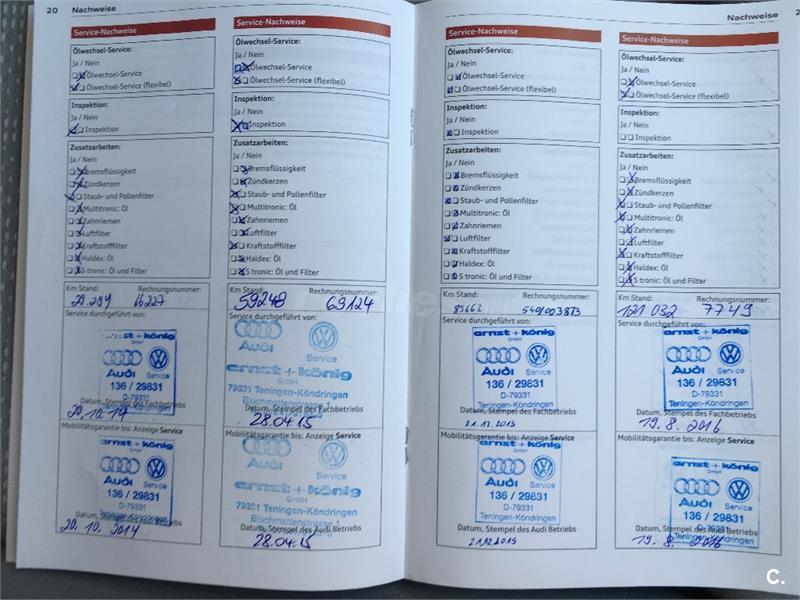 20 Nachweise
Service-Nachweise
Ölwechsel-Service:
Ja / Nein
Ölwechsel-Service
Ölwechsel-Service (flexibel)
Inspektion:
Ja / Nein
Inspektion
Zusatzarbeiten:
Ja / Nein
Bremsflüssigkeit
Zündkerzen
Staub- und Pollenfilter
Multitronic: Öl
Zahnriemen
Luftfilter
Kraftstofffilter
Haldex: Öl
S tronic: Öl und Filter
Km Stand: Rechnungsnummer:
29.294 66227
Service durchgeführt von:
arnst + könig
GmbH
Audi Service
136 / 29831
D-79331
Teningen-Köndringen
Datum, Stempel des Fachbetriebs
20.10.14
Mobilitätsgarantie bis: Anzeige Service
arnst + könig
GmbH
Audi Service
136 / 29831
D-79331
Teningen-Köndringen
Datum, Stempel des Audi Betriebs
20.10.2014
Service-Nachweise
Ölwechsel-Service:
Ja / Nein
Ölwechsel-Service
Ölwechsel-Service (flexibel)
Inspektion:
Ja / Nein
Inspektion
Zusatzarbeiten:
Ja / Nein
Bremsflüssigkeit
Zündkerzen
Staub- und Pollenfilter
Multitronic: Öl
Zahnriemen
Luftfilter
Kraftstofffilter
Haldex: Öl
S tronic: Öl und Filter
Km Stand: Rechnungsnummer:
59248 69124
Service durchgeführt von:
Audi Service
arnst + könig
GmbH
79331 Teningen-Köndringen
Blochmattenstrasse 1
Datum, Stempel des Fachbetriebs
28.04.15
Mobilitätsgarantie bis: Anzeige Service
Audi Service
arnst + könig
GmbH
79331 Teningen-Köndringen
Blochmattenstrasse 1
Datum, Stempel des Audi Betriebs
28.04.15
Nachweise 2
Service-Nachweise
Ölwechsel-Service:
Ja / Nein
Ölwechsel-Service
Ölwechsel-Service (flexibel)
Inspektion:
Ja / Nein
Inspektion
Zusatzarbeiten:
Ja / Nein
Bremsflüssigkeit
Zündkerzen
Staub- und Pollenfilter
Multitronic: Öl
Zahnriemen
Luftfilter
Kraftstofffilter
Haldex: Öl
S tronic: Öl und Filter
Km Stand: Rechnungsnummer:
Service durchgeführt von:
arnst + könig
GmbH
Audi Service
136 / 29831
D-79331
Teningen-Köndringen
Datum, Stempel des Fachbetriebs
21.12.2015
Mobilitätsgarantie bis: Anzeige Service
arnst + könig
GmbH
Audi Service
136 / 29831
D-79331
Teningen-Köndringen
Datum, Stempel des Audi Betriebs
21.12.2015
Service-Nachweise
Ölwechsel-Service:
Ja / Nein
Ölwechsel-Service
Ölwechsel-Service (flexibel)
Inspektion:
Ja / Nein
Inspektion
Zusatzarbeiten:
Ja / Nein
Bremsflüssigkeit
Zündkerzen
Staub- und Pollenfilter
Multitronic: Öl
Zahnriemen
Luftfilter
Kraftstofffilter
Haldex: Öl
S tronic: Öl und Filter
Km Stand: Rechnungsnummer:
121 032 7749
Service durchgeführt von:
arnst + könig
GmbH
Audi Service
136 / 29831
D-79331
Teningen-Köndringen
Datum, Stempel des Fachbetriebs
19.8.2016
Mobilitätsgarantie bis: Anzeige Service
arnst + könig
GmbH
Audi Service
136 / 29831
D-79331
Teningen-Köndringen
Datum, Stempel des Audi Betriebs
19.8.2016
C.